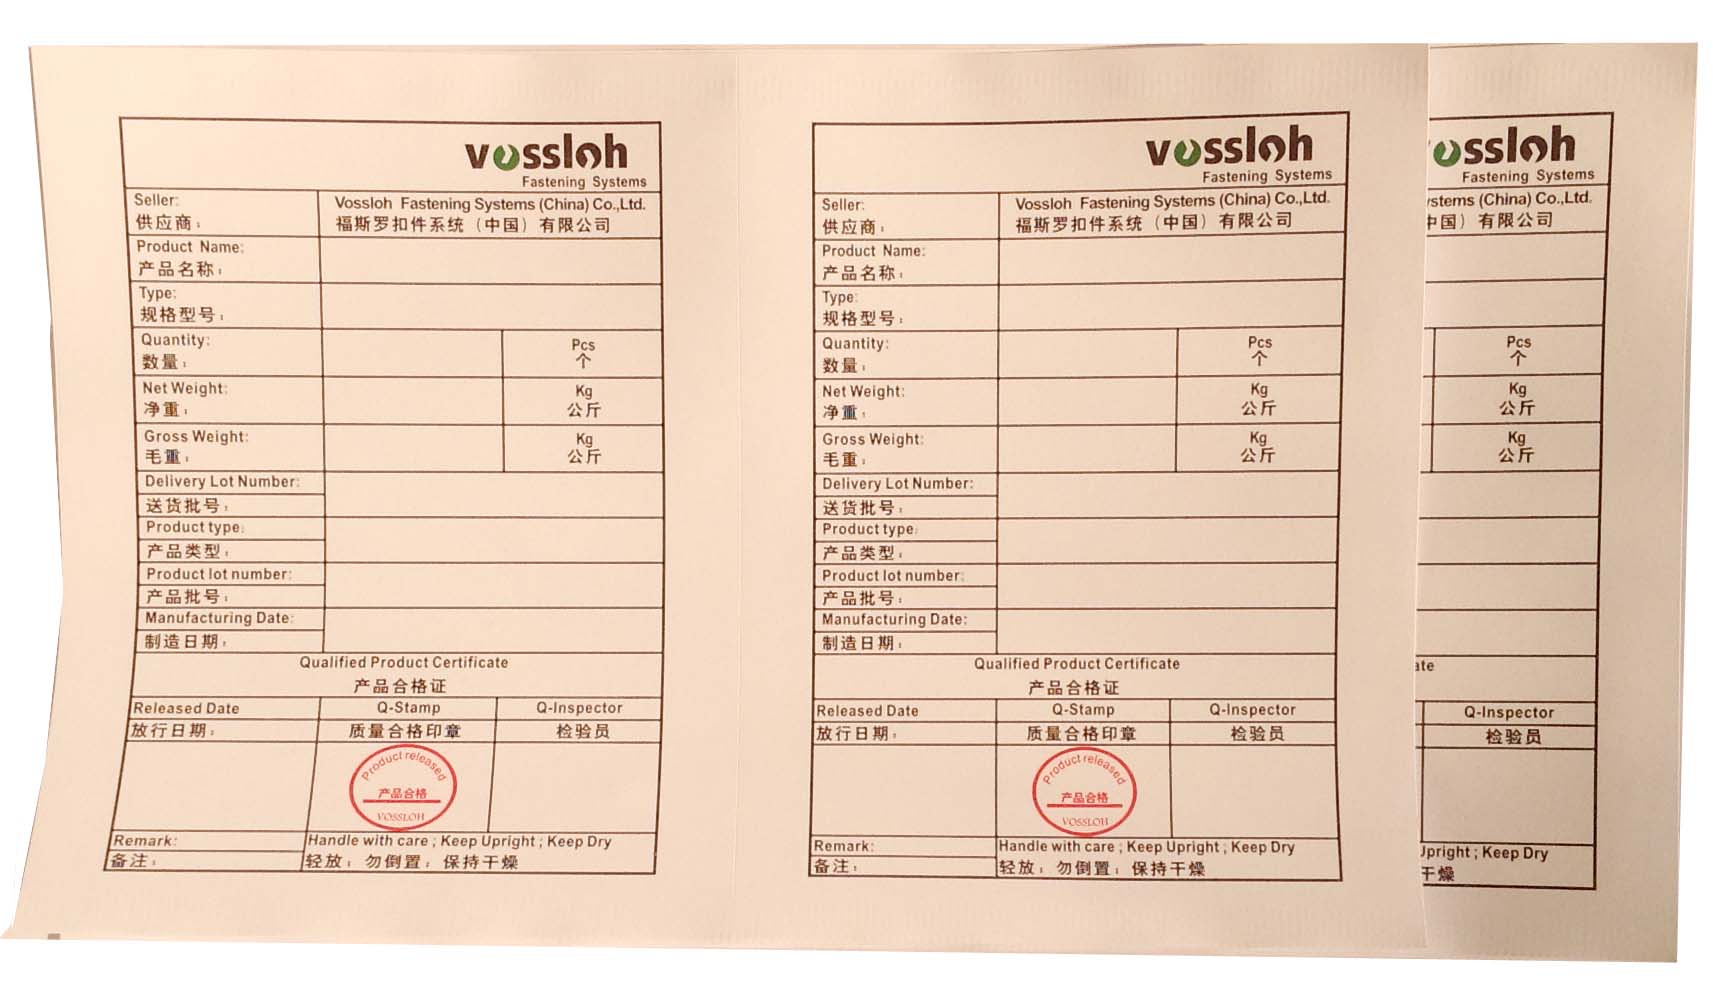 vossloh
Fastening Systems
Seller:
供应商：
Vossloh Fastening Systems (China) Co.,Ltd.
福斯罗扣件系统（中国）有限公司
Product Name:
产品名称：
Type:
规格型号：
Quantity:
数量：
Pcs
个
Net Weight:
净重：
Kg
公斤
Gross Weight:
毛重：
Kg
公斤
Delivery Lot Number:
送货批号：
Product type:
产品类型：
Product lot number:
产品批号：
Manufacturing Date:
制造日期：
Qualified Product Certificate
产品合格证
Released Date
放行日期：
Q-Stamp
质量合格印章
Q-Inspector
检验员
Product released
产品合格
VOSSLOH
Remark:
备注：
Handle with care ; Keep Upright ; Keep Dry
轻放；勿倒置；保持干燥
vossloh
Fastening Systems
Seller:
供应商：
Vossloh Fastening Systems (China) Co.,Ltd.
福斯罗扣件系统（中国）有限公司
Product Name:
产品名称：
Type:
规格型号：
Quantity:
数量：
Pcs
个
Net Weight:
净重：
Kg
公斤
Gross Weight:
毛重：
Kg
公斤
Delivery Lot Number:
送货批号：
Product type:
产品类型：
Product lot number:
产品批号：
Manufacturing Date:
制造日期：
Qualified Product Certificate
产品合格证
Released Date
放行日期：
Q-Stamp
质量合格印章
Q-Inspector
检验员
Product released
产品合格
VOSSLOH
Remark:
备注：
Handle with care ; Keep Upright ; Keep Dry
轻放；勿倒置；保持干燥
ossloh
Fastening Systems
stems (China) Co.,Ltd.
中国）有限公司
Pcs
个
Kg
公斤
Kg
公斤
ate
Q-Inspector
检验员
pright ; Keep Dry
干燥